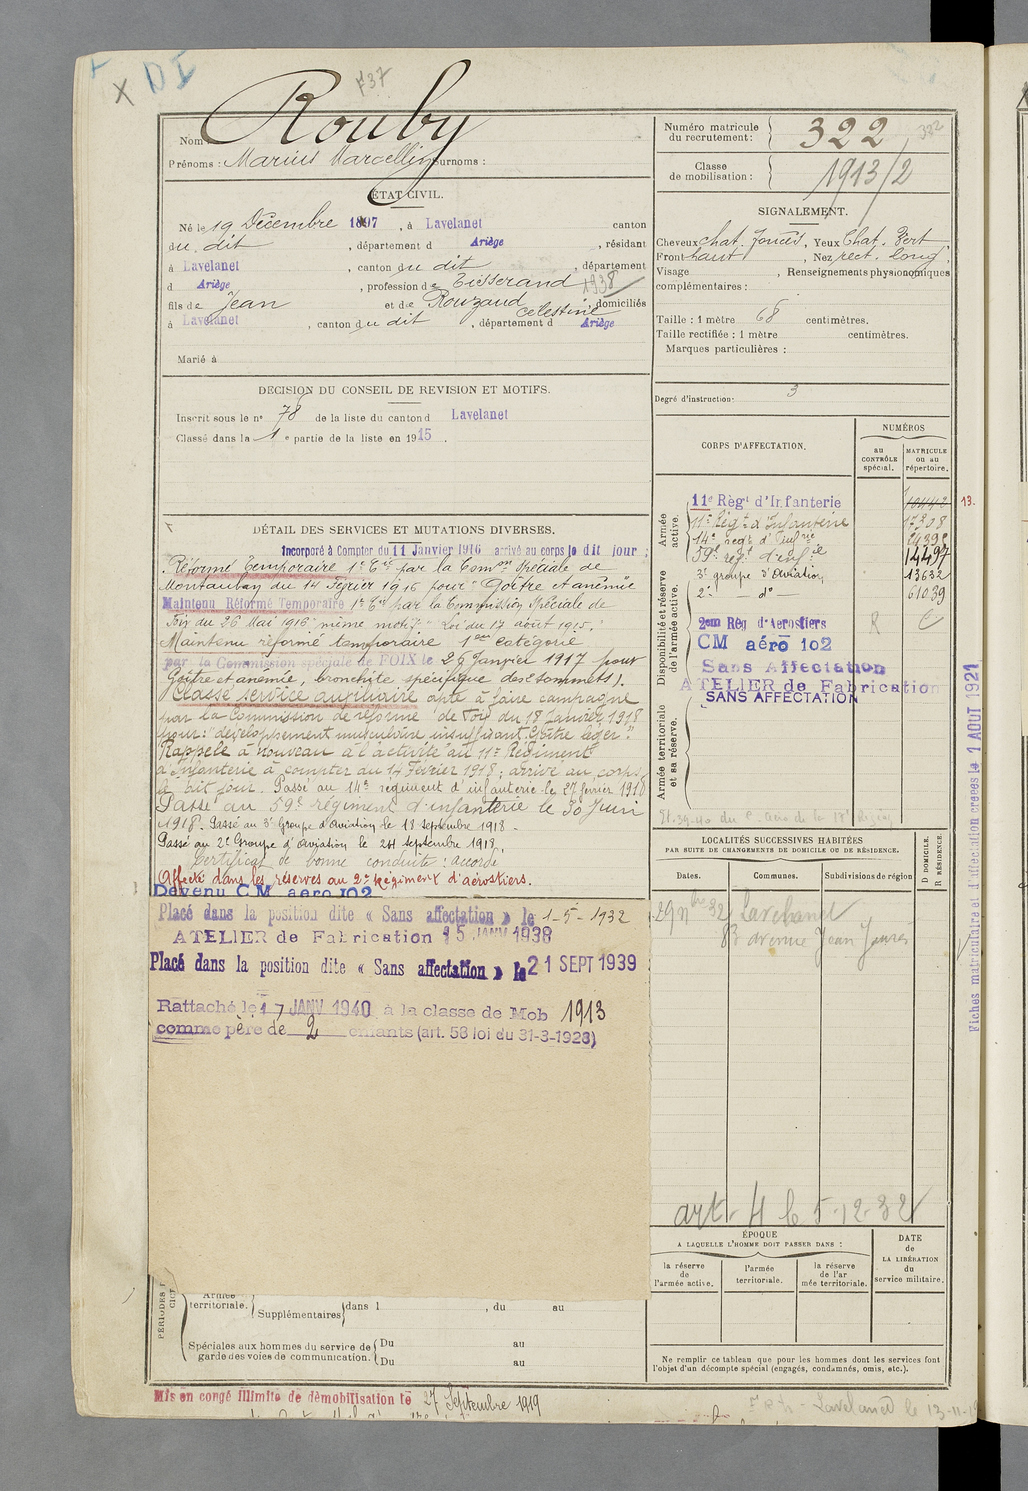 X DI
F37
Nom : Rouby
Prénoms : Marius Marcellin Surnoms :
ÉTAT CIVIL.
Né le 19 Décembre 1897, à Lavelanet canton
du dit, département d Ariège, résidant
à Lavelanet, canton du dit, département
d Ariège, profession de Tisserand 1938
fils de Jean et de Rouzaud Célestine, domiciliés
à Lavelanet, canton du dit, département d Ariège
Marié à
DÉCISION DU CONSEIL DE REVISION ET MOTIFS.
Inscrit sous le n° 78 de la liste du canton d Lavelanet
Classé dans la 1e partie de la liste en 1915.
DÉTAIL DES SERVICES ET MUTATIONS DIVERSES.
Incorporé à Compter du 11 Janvier 1916 arrivé au corps le dit jour ;
Réformé temporaire 1e Cie par la Comon spéciale de
Montauban du 14 Février 1916 pour "Goître et anémie
Maintenu Réformé Temporaire 1e Cie par la Commission Spéciale de
Foix du 26 Mai 1916 même motif" Loi du 17 août 1915.
Maintenu réformé temporaire 1ère catégorie
par la Commission spéciale de FOIX le 29 Janvier 1917 pour
Goître et anémie, bronchite spécifique des sommets).
Classé service auxiliaire apte à faire campagne
par la Commission de réforme de Foix du 18 Janvier 1918
pour : "développement musculaire insuffisant. Goître léger".
Rappelé à nouveau à l'activité au 11e Régiment
d'Infanterie à compter du 14 Février 1918 ; arrivé au corps
le dit jour. Passé au 14e régiment d'infanterie le 27 février 1918
Passé au 59e régiment d'infanterie le 30 Juin
1918. Passé au 3e Groupe d'aviation le 18 septembre 1918.
Passé au 2e Groupe d'aviation le 24 septembre 1918.
Certificat de bonne conduite : accordé
Affecté dans les réserves au 2e Régiment d'aérostiers.
Devenu C.M. aéro 102
Placé dans la position dite « Sans affectation » le 1-5-1932
ATELIER de Fabrication 15 JANV 1938
Placé dans la position dite « Sans affectation » le 21 SEPT 1939
Rattaché le 17 JANV 1940 à la classe de Mob 1913
comme père de 2 enfants (art. 58 loi du 31-3-1928)
Armée
territoriale. Supplémentaires dans l , du au
Spéciales aux hommes du service de Du au
garde des voies de communication. Du au
Mis en congé illimité de démobilisation le 27 Septembre 1919
Numéro matricule
du recrutement : 322 322
Classe
de mobilisation : 1913/2
SIGNALEMENT.
Cheveux chat. foncés, Yeux Chat. Vert
Front haut, Nez rect. long
Visage , Renseignements physionomiques
complémentaires :
Taille : 1 mètre 68 centimètres.
Taille rectifiée : 1 mètre centimètres.
Marques particulières :
Degré d'instruction : 3
CORPS D'AFFECTATION.
NUMÉROS
au CONTRÔLE spécial.
MATRICULE ou au répertoire.
Armée active.
11e Règt d'Infanterie 10442
11e Régt d'Infanterie 17308
14e régt d'Infrie 24392
59e regt d'infie 14497
Disponibilité et réserve de l'armée active.
3e groupe d'aviation 13632
2e — d° — 61039
2eme Règ d'Aerostiers R C
CM aéro 102
Sans Affectation
ATELIER de Fabrication
SANS AFFECTATION
Armée territoriale et sa réserve.
13.
Fiches matriculaire et d'affectation créées le 1 AOUT 1921
LOCALITÉS SUCCESSIVES HABITÉES
PAR SUITE DE CHANGEMENTS DE DOMICILE OU DE RÉSIDENCE.
Dates. Communes. Subdivisions de région
D DOMICILE. R RÉSIDENCE.
29 nbre 32 Lavelanet
83 avenue Jean Jaures
art. 4 le 5-12-32
ÉPOQUE
A LAQUELLE L'HOMME DOIT PASSER DANS :
la réserve de l'armée active.
l'armée territoriale.
la réserve de l'armée territoriale.
DATE de LA LIBÉRATION du service militaire.
Ne remplir ce tableau que pour les hommes dont les services font
l'objet d'un décompte spécial (engagés, condamnés, omis, etc.).
Lavelanet le 13-11-